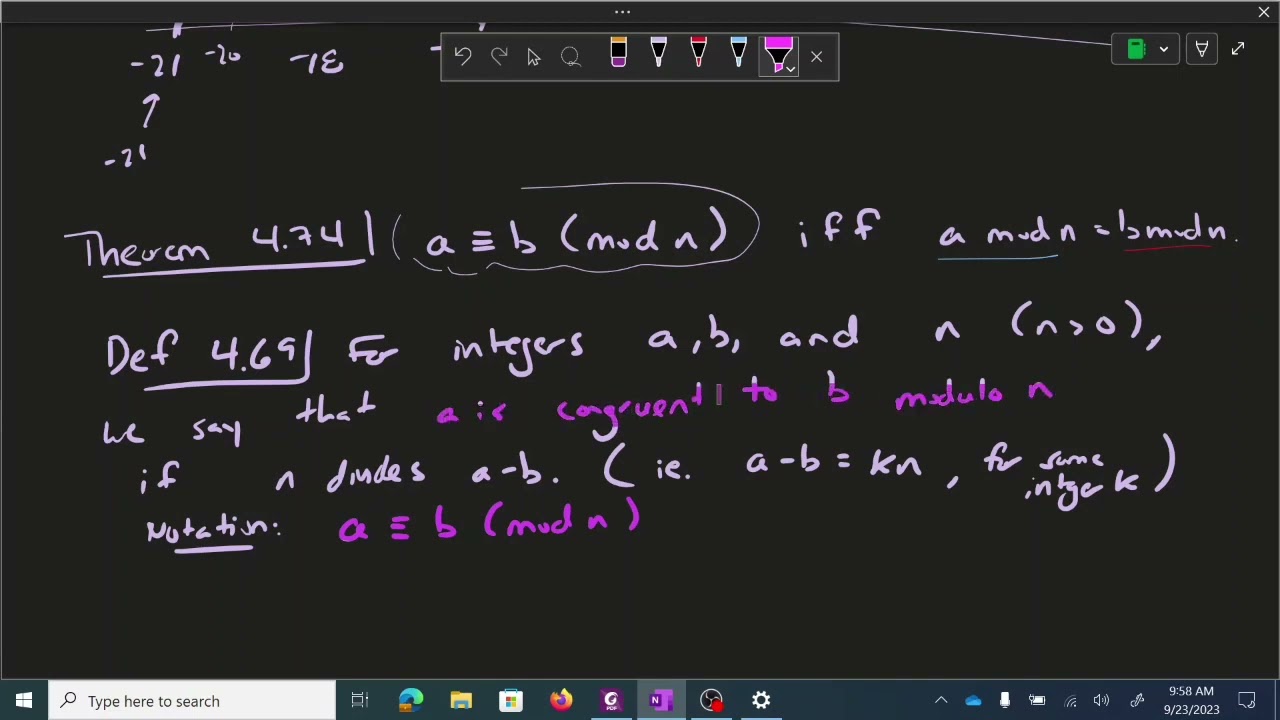 -21 -20 -18
-21
Theorem 4.74 a ≡ b (mod n) iff a mod n = b mod n.
Def 4.69 For integers a, b, and n (n > 0),
we say that a is congruent to b modulo n
if n divides a-b. (ie. a-b = kn, for some integer k)
Notation: a ≡ b (mod n)
Type here to search
PDF
9:58 AM
9/23/2023